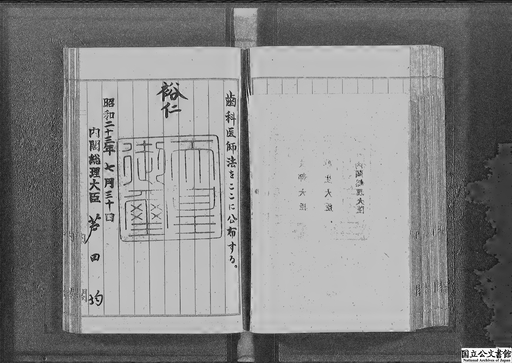 歯科医師法をここに公布する。
裕仁
天皇御璽
昭和二十三年七月三十日
内閣総理大臣 芦田均
内閣総理大臣
厚生大臣
文部大臣
国立公文書館
National Archives of Japan